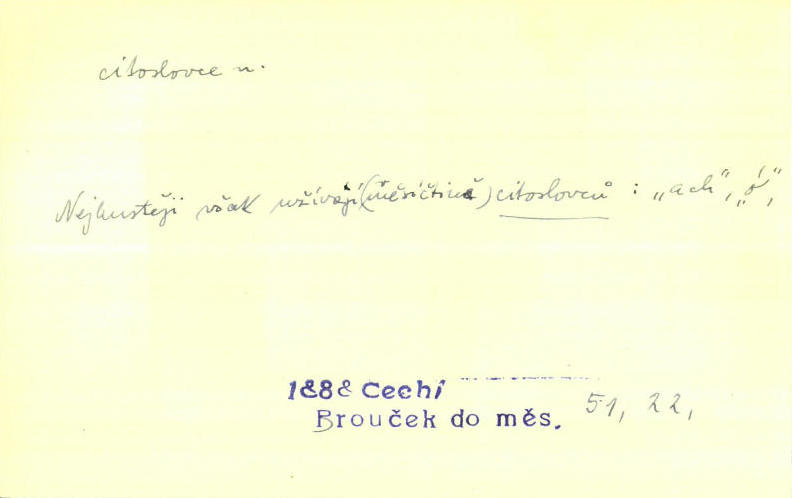 citoslovce n.
Nejhustěji však užívají (měsíčtině) citoslovců : „ach", „ó",
1888 Cechí
Brouček do měs. 51, 22,